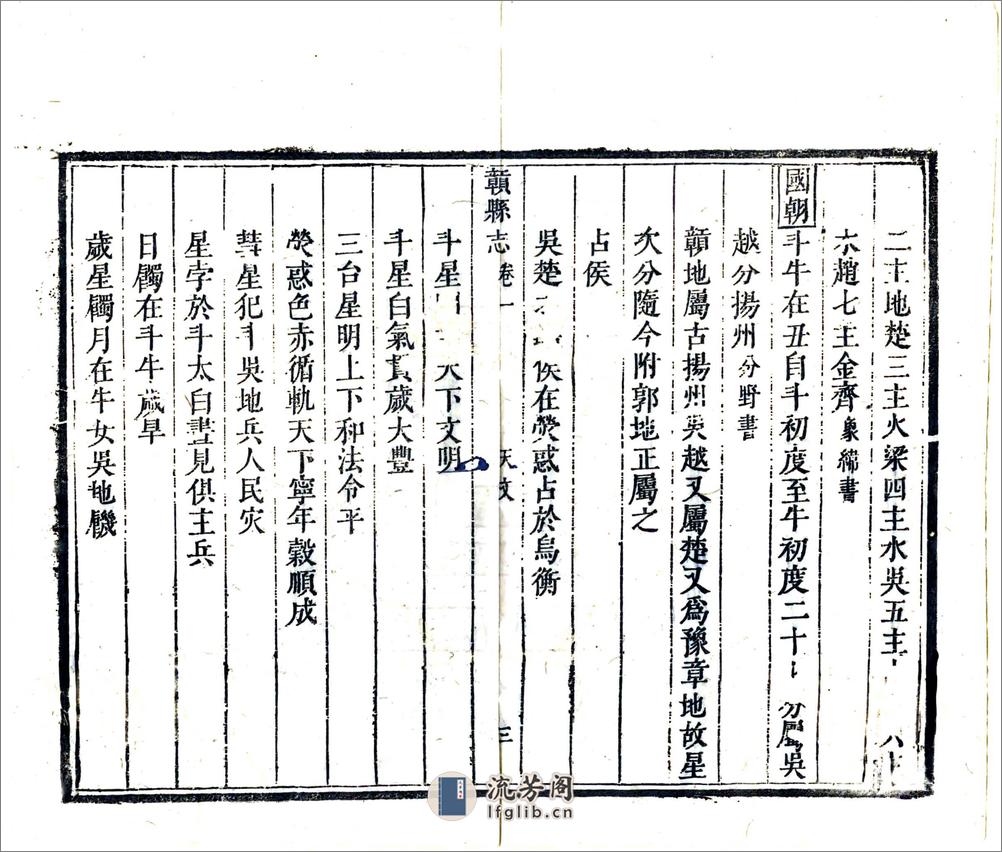 二主地楚三主火梁四主水吳五主
木趙七主金齊象緯書
國朝斗牛在丑自斗初度至牛初度二十分屬吳
越分揚州分野書
贛地屬古揚州吳越又屬楚又爲豫章地故星
次分隨今附郭地正屬之
占侯
吳楚侯在熒惑占於鳥衡
贛縣志 卷一 天文 三
斗星天下文明
斗星白氣貫歲大豐
三台星明上下和法令平
熒惑色赤循軌天下寧年穀順成
彗星犯斗吳地兵人民灾
星孛於斗太白晝見俱主兵
日鐲在斗牛歲旱
歲星鐲月在牛女吳地饑
流芳阁
lfglib.cn